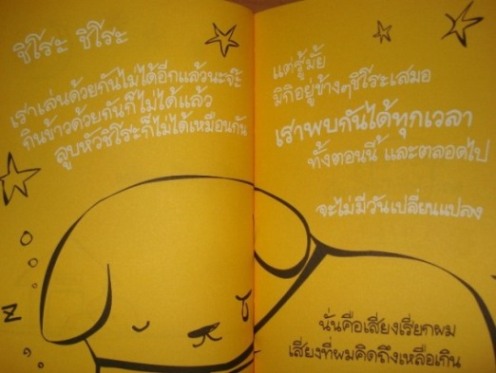 ชิโระ ชิโระ
เราเล่นด้วยกันไม่ได้อีกแล้วนะจ๊ะ
กินข้าวด้วยกันก็ไม่ได้แล้ว
ลูบหัวชิโระก็ไม่ได้เหมือนกัน
z
แต่รู้มั้ย
มิกิอยู่ข้างๆชิโระเสมอ
เราพบกันได้ทุกเวลา
ทั้งตอนนี้ และตลอดไป
จะไม่มีวันเปลี่ยนแปลง
นั่นคือเสียงเรียกผม
เสียงที่ผมคิดถึงเหลือเกิน